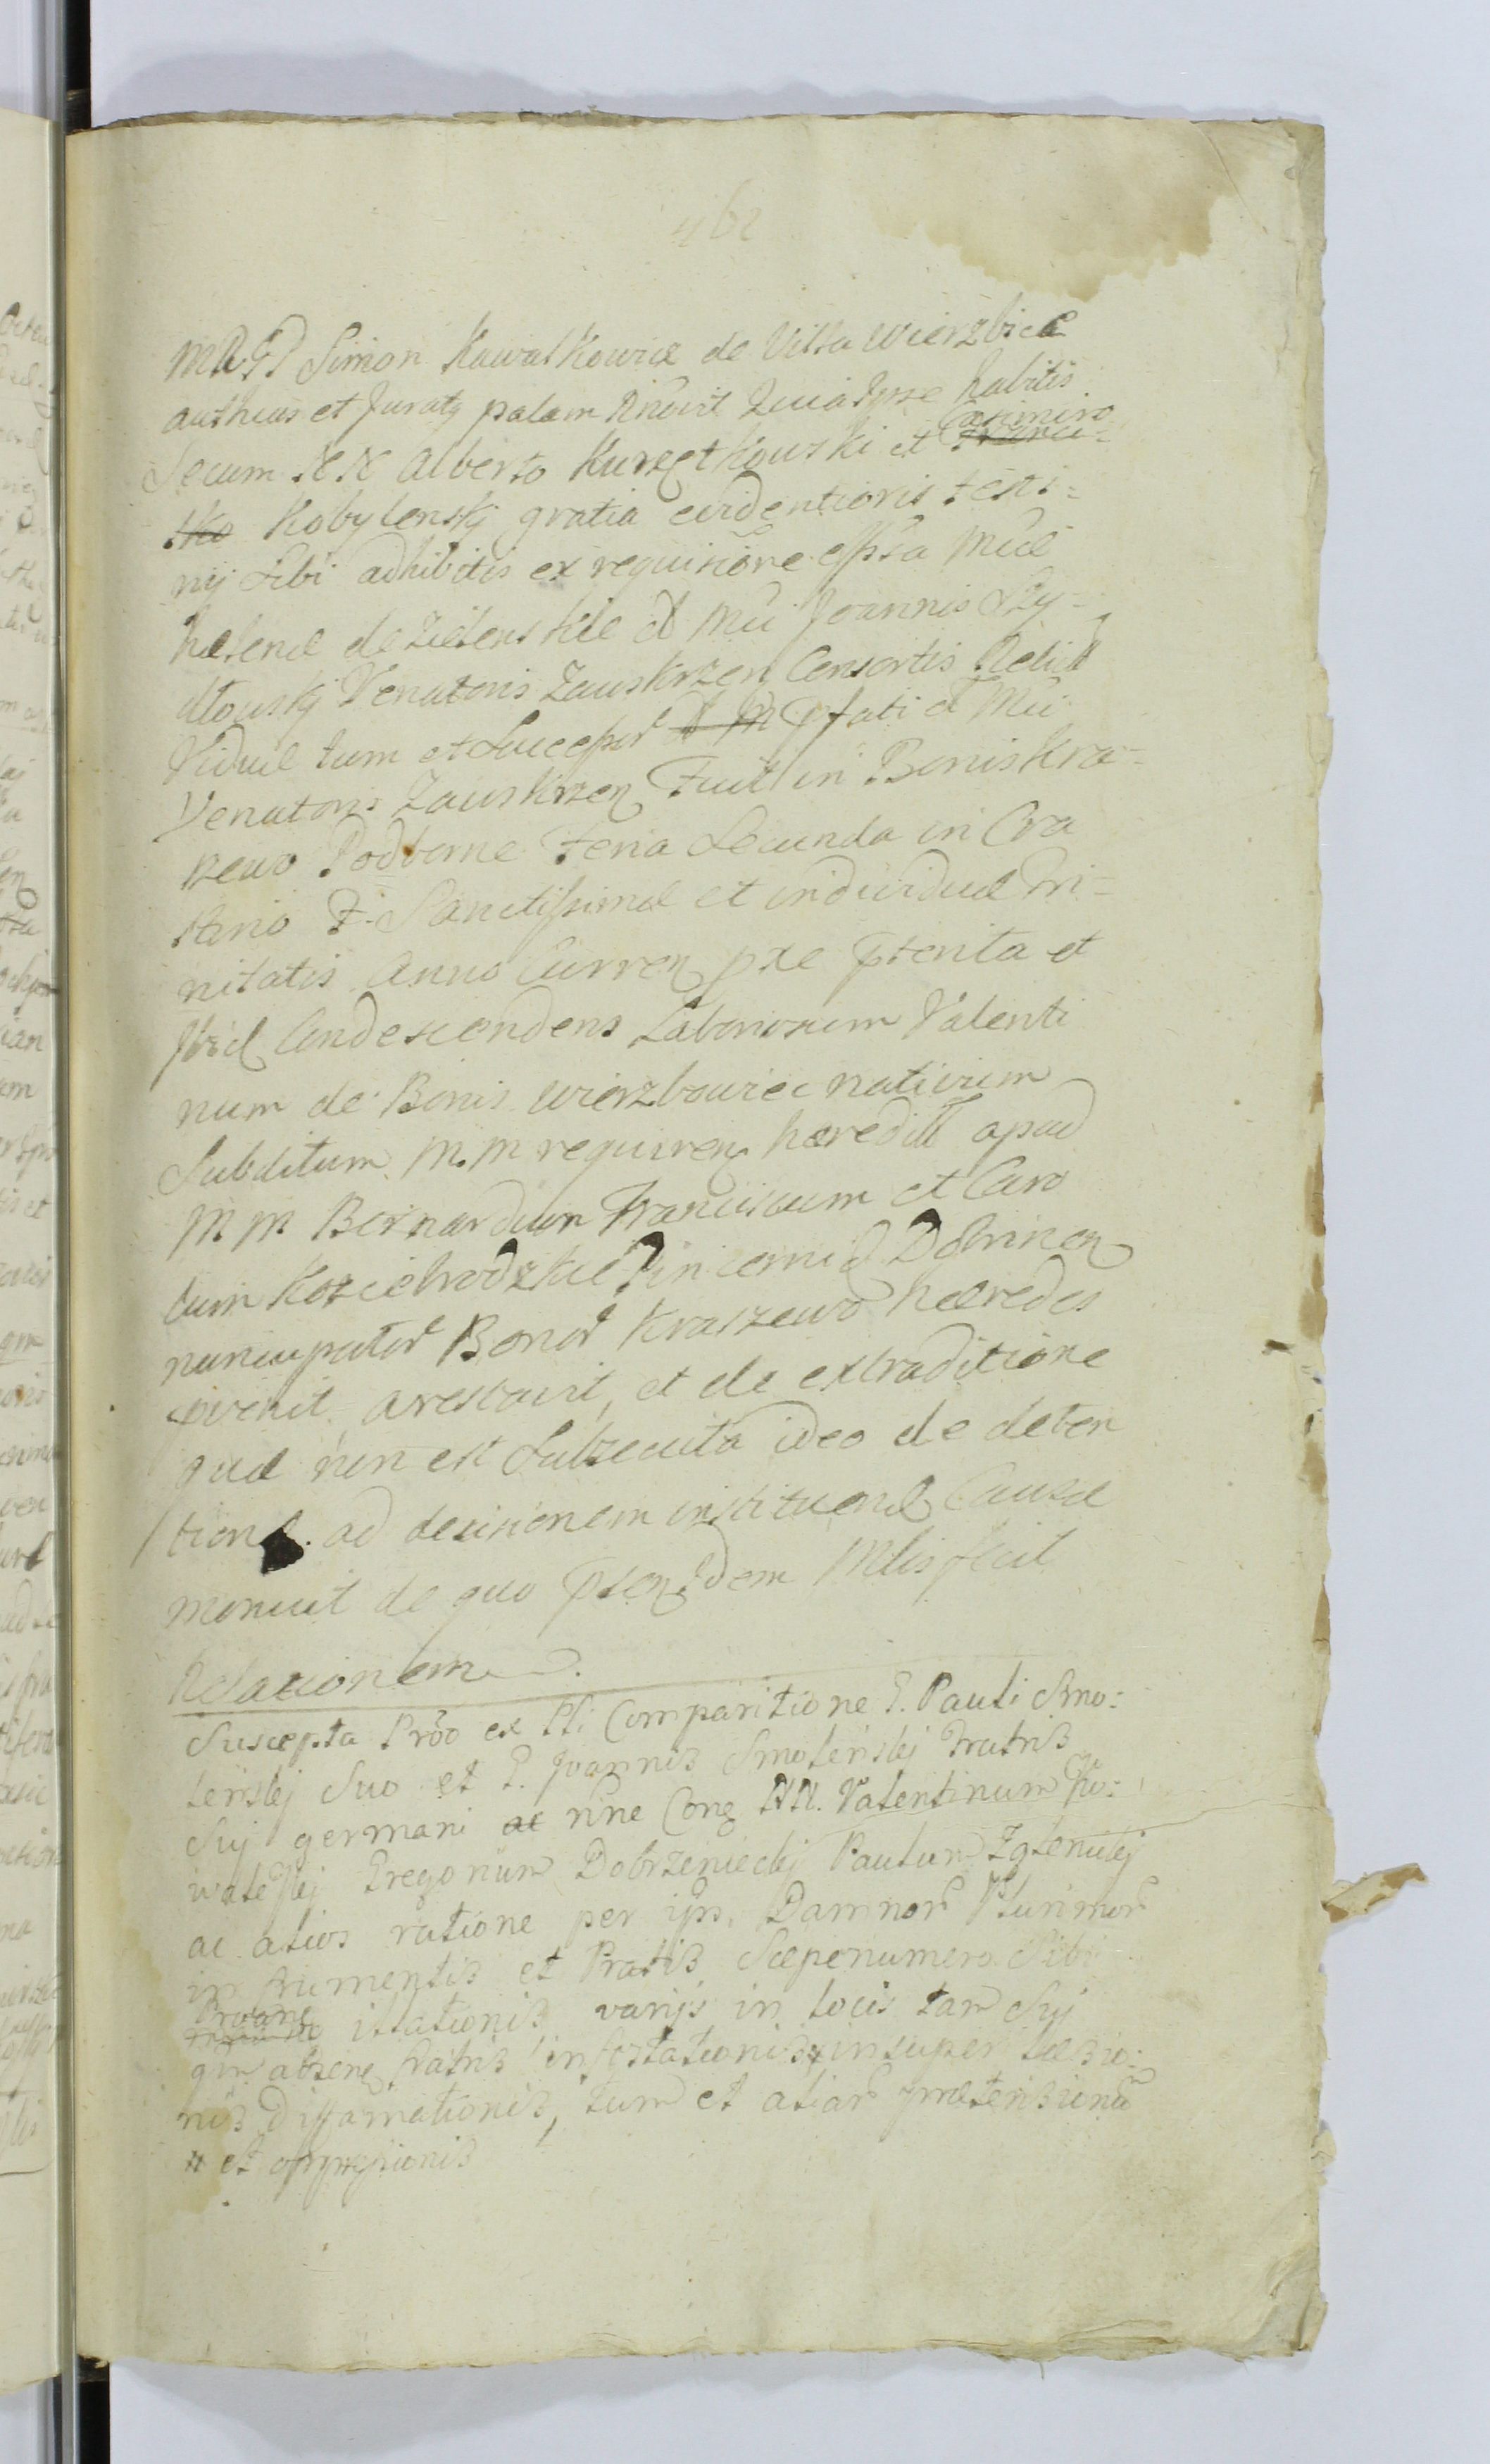 462
MRGD Simon Kawalkowicz de Villa Wierzbice
authcus et Juratq palam Rnovit Quia Ipse habitis
Casimiro
Secum NN Alberto Kurzętkouski et Franci=
sko Kobylenskj gratia evidentioris testi=
nij Sibi adhibitis ex requisiõne essa Mcae
Helenae de Zielenskie d Mci Joannis Szy=
dłouskj Venatoris Zauskrzen Consortis Relict
Viduae tum et Succespor d M pfati d Mci
Venatoris Zauskrzen Fuit in Bonis Kra=
szewo Podborne Feria Secunda in Cra
stino F. Sanctissimae et individuae Tri=
nitatis Anno Curren pxe pterita et
Ibid Condescendens Laboriosum Valenti
num de Bonis Wierzbowiec nativum
Subditum M. M requiren haeredit apud
M M Bernardum Franciscum et Caro
lum Koziebrodzkie Pincernid Dobrinen
nuncupator Bonor Kraszewo haeredes
invenit arestavit, et de extraditione
quae non est Subsecuta ideo de deten
tione ad decisionem instituend Causae
monuit de quo psen Idem Mlis fecit
Relationem.
Suscepta Prõo ex Pti Comparitione G. Pauli Smo:
leńslej Suo et G. Joannis Smoleńslej Fratris
Suj germani ac nine Con NN. Valentinum Ko:
walesslej Gregorium Dobrzenieckj Paulum Zglenickj
ac alios ratione per ips. Damnor Plurimor
in frumentis et Pratis Saepenumero Sibi
illationis varijs in locis tam Suj
qm absen Fratris infestationis # insuper laesio:
nis Diffamationis, tum et aliar praetensionũ
# et oppressionis